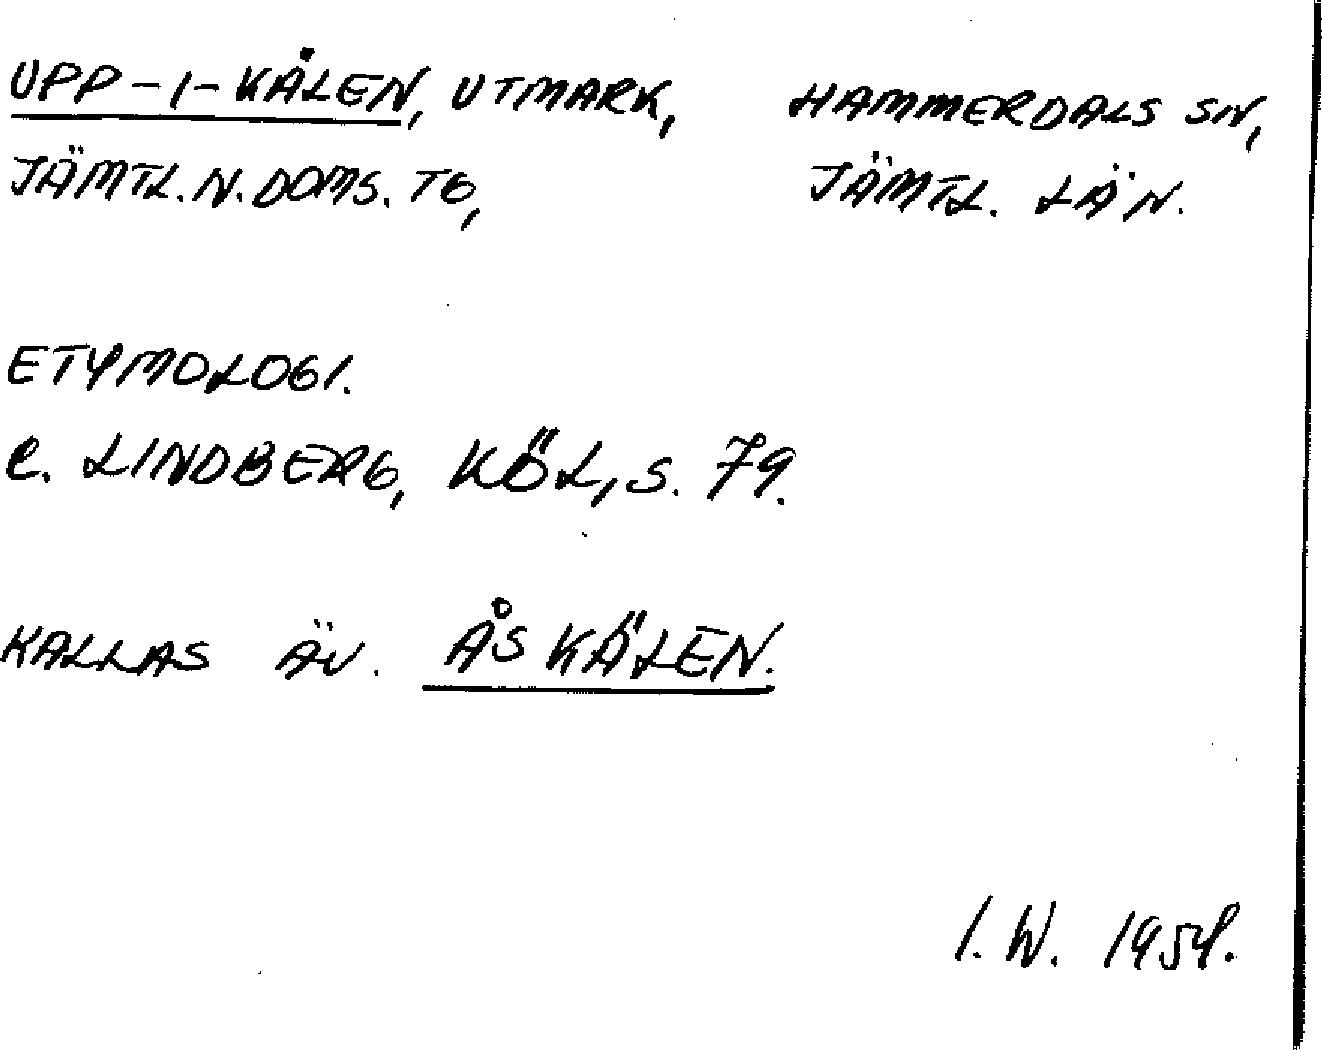 UPP-I-KÅLEN, UTMARK, HAMMERDALS SN,
JÄMTL. N. DOMS. TG, JÄMTL. LÄN.
ETYMOLOGI.
C. LINDBERG, KÖL, S. 79.
KALLAS ÄV. ÅSKÄLEN.
I. W. 1954.